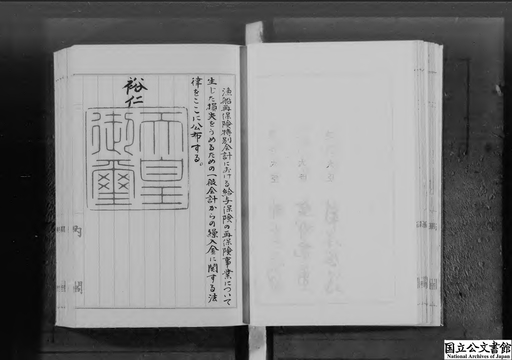 漁船再保険特別会計における給与保険の再保険事業について
生じた損失をうめるための一般会計からの繰入金に関する法
律をここに公布する。
裕仁
天皇
御璽
国立公文書館
National Archives of Japan